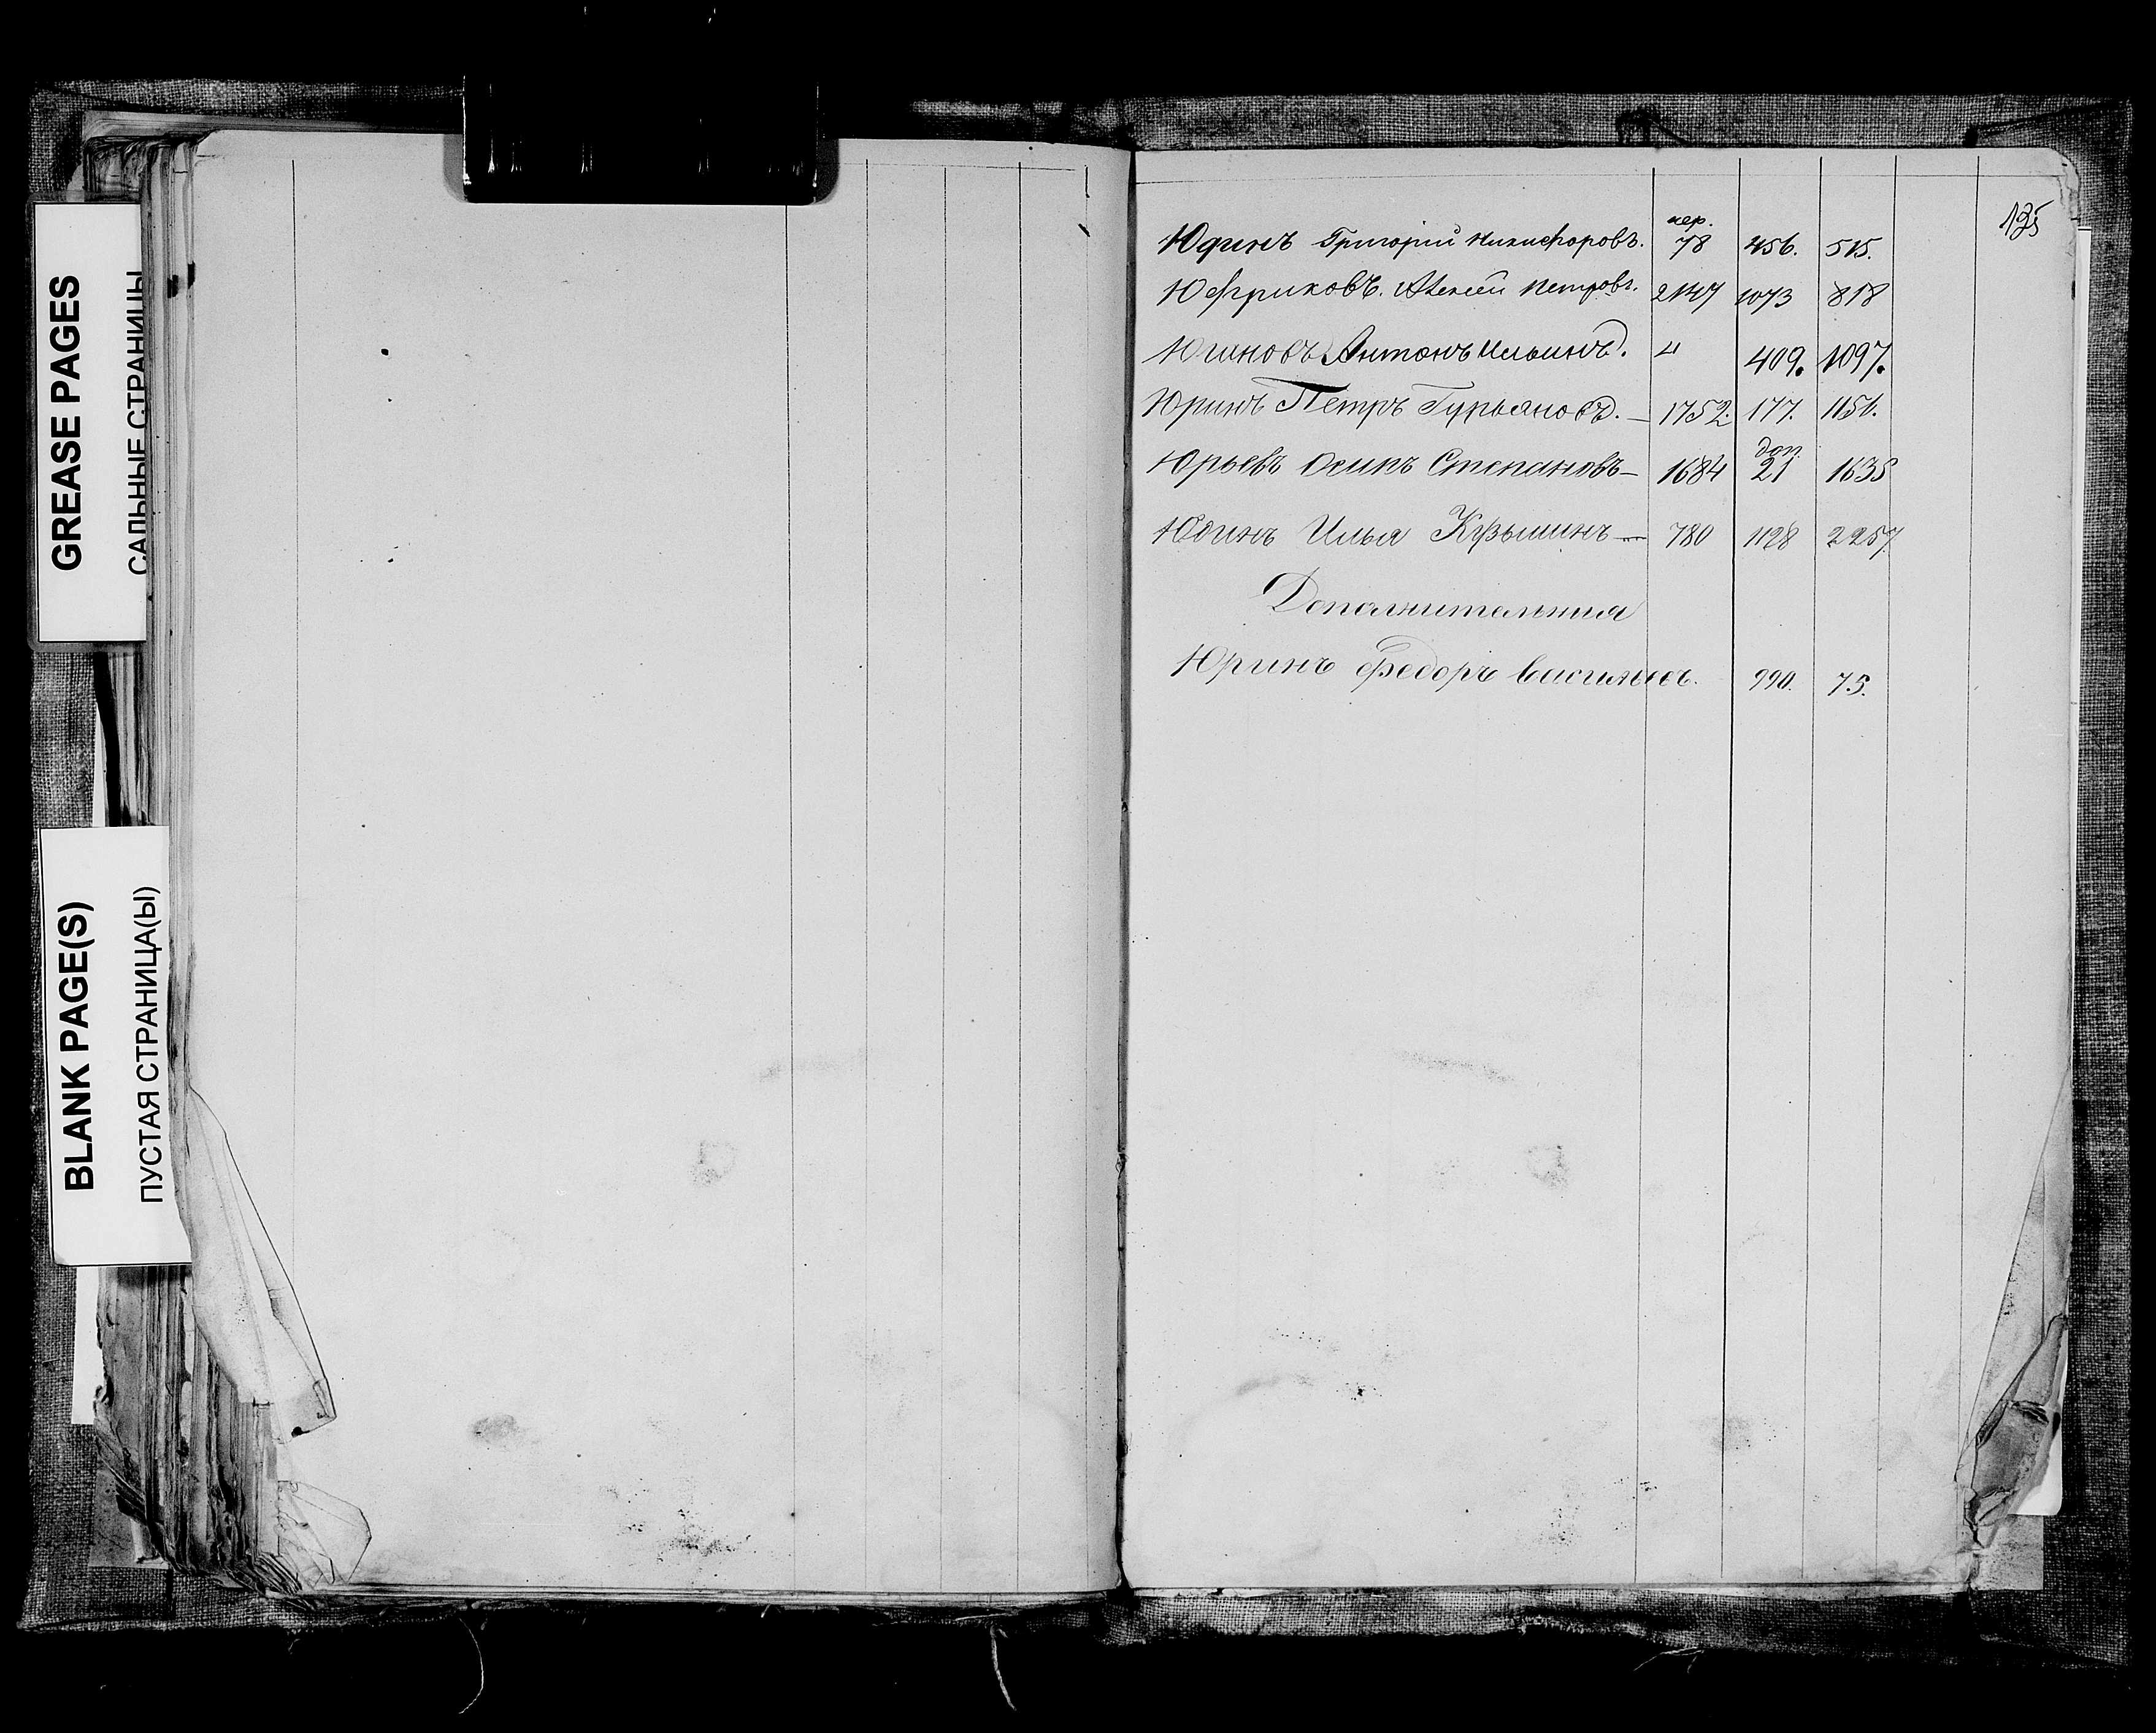 GREASE PAGES
САЛЬНЫЕ СТРАНИЦЫ
BLANK PAGE(S)
ПУСТАЯ СТРАНИЦА(Ы)
135
Юдинъ Григорій Никифоровъ. 78 456. 515.
Алексей Петровъ. 2147 1073 818
Югановъ Антонъ Ильинъ. 4 409. 1097.
Юринъ Петръ Гурьяновъ. — 1752. 177. 1151.
Юрьевъ Осипъ Степановъ — 1684 доп. 21 1635
Юдинъ Илья Кузьминъ — 780 1128 2257.
Дополнительния
Юринъ Федоръ Васильевъ. 990. 75.